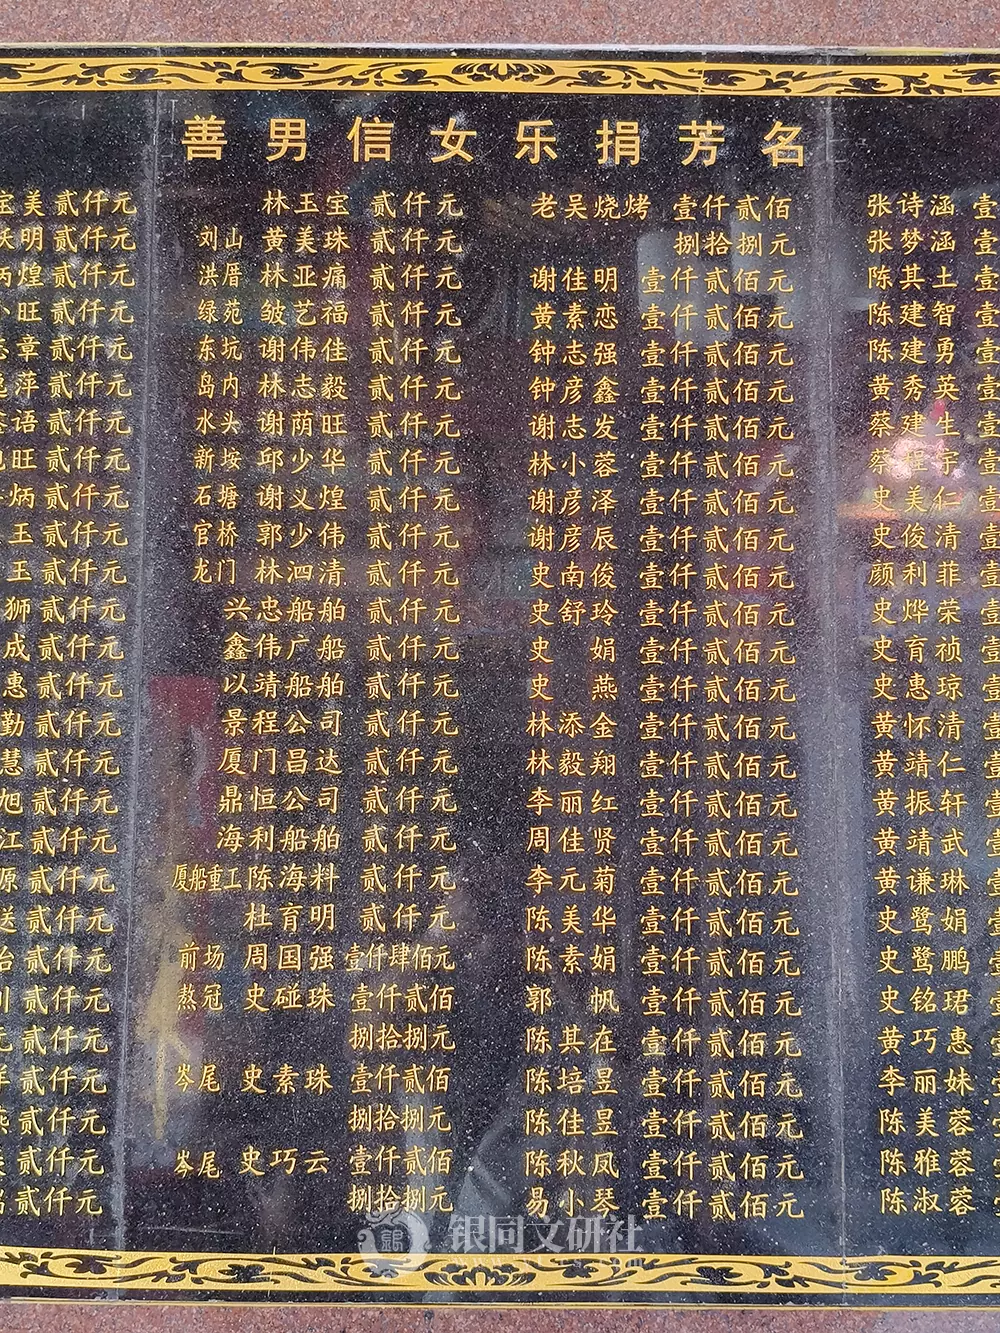 善男信女乐捐芳名
宝美 贰仟元
明 贰仟元
炳煌 贰仟元
小旺 贰仟元
章 贰仟元
萍 贰仟元
语 贰仟元
旺 贰仟元
炳 贰仟元
王 贰仟元
玉 贰仟元
狮 贰仟元
成 贰仟元
惠 贰仟元
勤 贰仟元
慧 贰仟元
旭 贰仟元
江 贰仟元
源 贰仟元
送 贰仟元
贰仟元
贰仟元
贰仟元
贰仟元
燕 贰仟元
贰仟元
贰仟元
林玉宝 贰仟元
刘山 黄美珠 贰仟元
洪厝 林亚痛 贰仟元
绿苑 皱艺福 贰仟元
东坑 谢伟佳 贰仟元
岛内 林志毅 贰仟元
水头 谢荫旺 贰仟元
新垵 邱少华 贰仟元
石塘 谢义煌 贰仟元
官桥 郭少伟 贰仟元
龙门 林泗清 贰仟元
兴忠船舶 贰仟元
鑫伟广船 贰仟元
以靖船舶 贰仟元
景程公司 贰仟元
厦门昌达 贰仟元
鼎恒公司 贰仟元
海利船舶 贰仟元
厦船重工 陈海料 贰仟元
杜育明 贰仟元
前场 周国强 壹仟肆佰元
蔡冠 史碰珠 壹仟贰佰
捌拾捌元
岑尾 史素珠 壹仟贰佰
捌拾捌元
岑尾 史巧云 壹仟贰佰
捌拾捌元
老吴烧烤 壹仟贰佰
捌拾捌元
谢佳明 壹仟贰佰元
黄素恋 壹仟贰佰元
钟志强 壹仟贰佰元
钟彦鑫 壹仟贰佰元
谢志发 壹仟贰佰元
林小蓉 壹仟贰佰元
谢彦泽 壹仟贰佰元
谢彦辰 壹仟贰佰元
史南俊 壹仟贰佰元
史舒玲 壹仟贰佰元
史娟 壹仟贰佰元
史燕 壹仟贰佰元
林添金 壹仟贰佰元
林毅翔 壹仟贰佰元
李丽红 壹仟贰佰元
周佳贤 壹仟贰佰元
李元菊 壹仟贰佰元
陈美华 壹仟贰佰元
陈素娟 壹仟贰佰元
郭帆 壹仟贰佰元
陈其在 壹仟贰佰元
陈培昱 壹仟贰佰元
陈佳昱 壹仟贰佰元
陈秋凤 壹仟贰佰元
易小琴 壹仟贰佰元
张诗涵 壹
张梦涵 壹
陈其土 壹
陈建智 壹
陈建勇 壹
黄秀英 壹
蔡建生 壹
蔡程宇 壹
史美仁 壹
史俊清 壹
颜利菲 壹
史烨荣 壹
史育祯 壹
史惠琼 壹
黄怀清 壹
黄靖仁 壹
黄振轩 壹
黄靖武 壹
黄谦琳 壹
史鹭娟 壹
史鹭鹏 壹
史铭珺 壹
黄巧惠 壹
李丽妹
陈美蓉
陈雅蓉
陈淑蓉
银同文研社